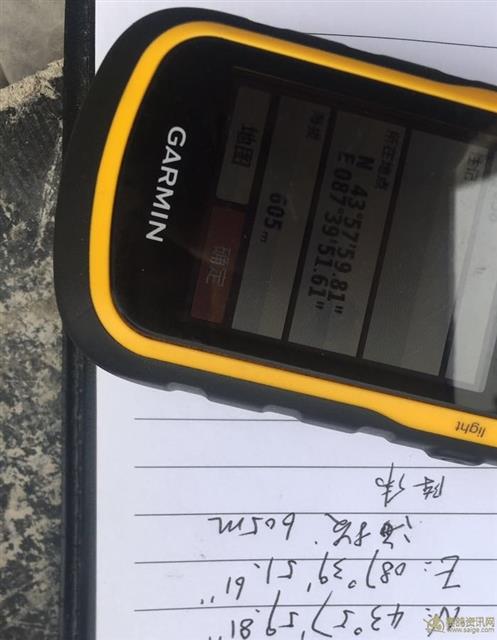 所在地点
N 43°57'59.81"
E 087°39'51.61"
海拔
605m
地图
确定
GARMIN
light
N: 43°57'59.81"
E: 087°39'51.61"
海拔: 605m
信鸽资讯网
www.saige.com